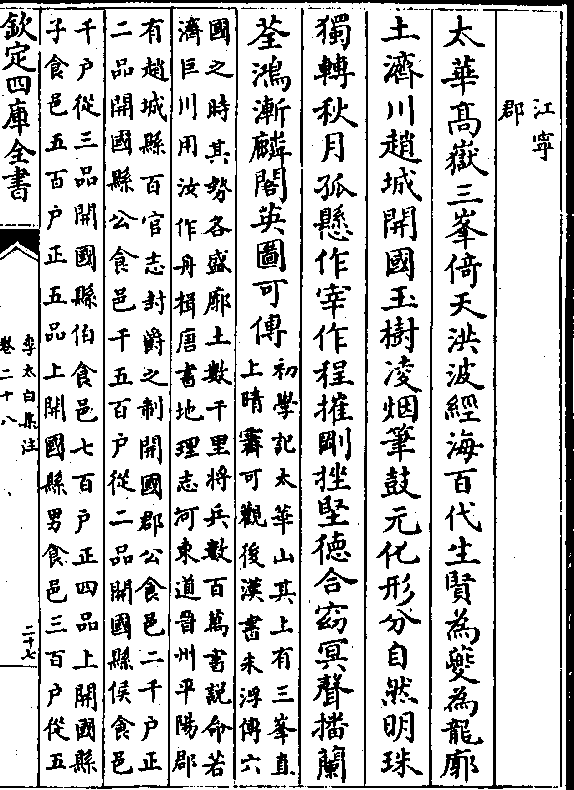 江寧
郡
太華髙嶽三峯倚天洪波經海百代生賢為夔為龍廓
土濟川趙城開國玉樹凌烟筆鼓元化形分自然明珠
獨轉秋月孤懸作宰作程摧剛挫堅徳合窈冥聲播蘭
荃鴻漸麟閣英圖可傳
初學記太華山其上有三峯直
上晴霽可觀後漢書朱浮傳六
國之時其勢各盛廓土數千里将兵數百萬書說命若
濟巨川用汝作舟楫唐書地理志河東道晉州平陽郡
有趙城縣百官志封爵之制開國郡公食邑二千户正
二品開國縣公食邑千五百户從二品開國縣侯食邑
千户從三品開國縣伯食邑七百户正四品上開國縣
子食邑五百户正五品上開國縣男食邑三百户從五
欽定四庫全書
李太白集注
卷二十八
二十七